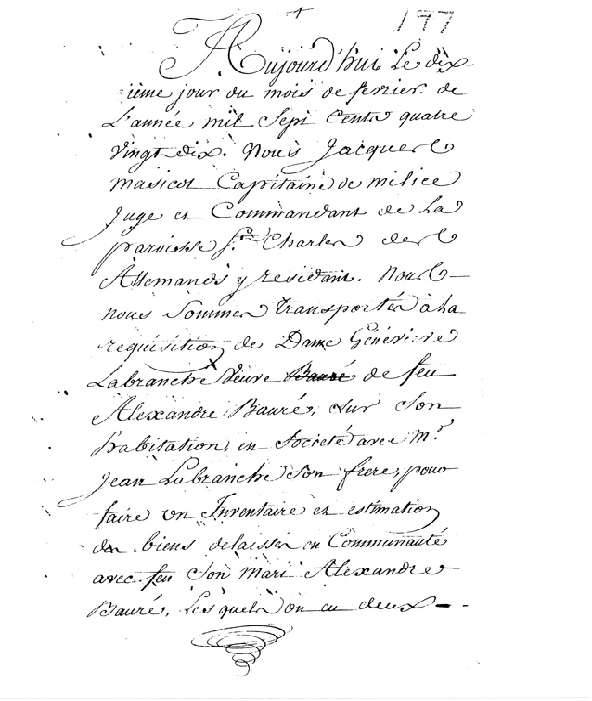 177
Aujourd'hui Le dix
ième jour du mois de fevrier de
L'année mil Sept Cents quatre
Vingt dix. Nous Jacques
masicot Capitaine de milice
Juge et Commandant de La
paroisse St. Charles des
Allemands y residant. Nous
nous Sommes transportés à La
requisition de Dame Généviève
Labranche Veuve Bauré de feu
Alexandre Bauré, Sur Son
habitation, en Societé avec Mr.
Jean Labranche Son frere, pour
faire un Inventaire et estimation
des biens delaissés en Communauté
avec feu Son Mari Alexandre
Bauré, Lesquels on eu deux